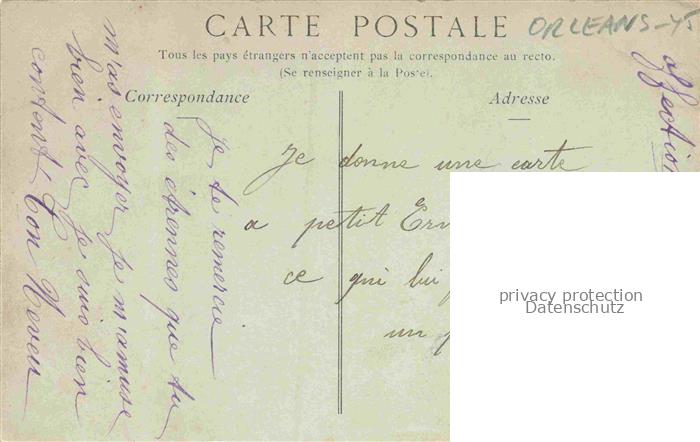 CARTE POSTALE
ORLEANS-45
Tous les pays étrangers n'acceptent pas la correspondance au recto.
(Se renseigner à la Poste).
Correspondance
Adresse
Je te remercie
des étrennes que tu
m'as envoyer je m'amuse
bien avec je suis bien
content Ton Neveu
affection
Je donne une carte
a petit
ce qui lui
un
privacy protection
Datenschutz